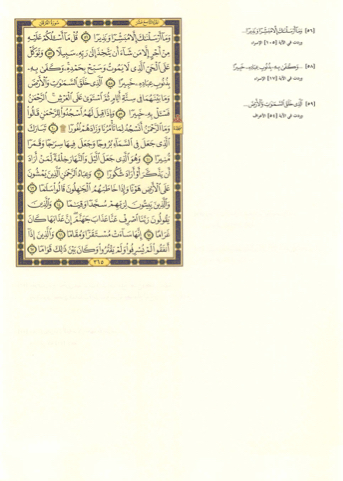 سورة الفرقان
وَمَآ أَرْسَلْنَٰكَ إِلَّا مُبَشِّرًا وَنَذِيرًا ٥٦ قُلْ مَآ أَسْـَٔلُكُمْ عَلَيْهِ
مِنْ أَجْرٍ إِلَّا مَن شَآءَ أَن يَتَّخِذَ إِلَىٰ رَبِّهِۦ سَبِيلًا ٥٧ وَتَوَكَّلْ
عَلَى ٱلْحَىِّ ٱلَّذِى لَا يَمُوتُ وَسَبِّحْ بِحَمْدِهِۦ وَكَفَىٰ بِهِۦ
بِذُنُوبِ عِبَادِهِۦ خَبِيرًا ٥٨ ٱلَّذِى خَلَقَ ٱلسَّمَٰوَٰتِ وَٱلْأَرْضَ
وَمَا بَيْنَهُمَا فِى سِتَّةِ أَيَّامٍ ثُمَّ ٱسْتَوَىٰ عَلَى ٱلْعَرْشِ ٱلرَّحْمَٰنُ
فَسْـَٔلْ بِهِۦ خَبِيرًا ٥٩ وَإِذَا قِيلَ لَهُمُ ٱسْجُدُوا۟ لِلرَّحْمَٰنِ قَالُوا۟
وَمَا ٱلرَّحْمَٰنُ أَنَسْجُدُ لِمَا تَأْمُرُنَا وَزَادَهُمْ نُفُورًا ۩ ٦٠ تَبَارَكَ
ٱلَّذِى جَعَلَ فِى ٱلسَّمَآءِ بُرُوجًا وَجَعَلَ فِيهَا سِرَٰجًا وَقَمَرًا
مُّنِيرًا ٦١ وَهُوَ ٱلَّذِى جَعَلَ ٱلَّيْلَ وَٱلنَّهَارَ خِلْفَةً لِّمَنْ أَرَادَ
أَن يَذَّكَّرَ أَوْ أَرَادَ شُكُورًا ٦٢ وَعِبَادُ ٱلرَّحْمَٰنِ ٱلَّذِينَ يَمْشُونَ
عَلَى ٱلْأَرْضِ هَوْنًا وَإِذَا خَاطَبَهُمُ ٱلْجَٰهِلُونَ قَالُوا۟ سَلَٰمًا ٦٣
وَٱلَّذِينَ يَبِيتُونَ لِرَبِّهِمْ سُجَّدًا وَقِيَٰمًا ٦٤ وَٱلَّذِينَ
يَقُولُونَ رَبَّنَا ٱصْرِفْ عَنَّا عَذَابَ جَهَنَّمَ إِنَّ عَذَابَهَا كَانَ
غَرَامًا ٦٥ إِنَّهَا سَآءَتْ مُسْتَقَرًّا وَمُقَامًا ٦٦ وَٱلَّذِينَ إِذَآ
أَنفَقُوا۟ لَمْ يُسْرِفُوا۟ وَلَمْ يَقْتُرُوا۟ وَكَانَ بَيْنَ ذَٰلِكَ قَوَامًا ٦٧
٣٦٥
[٥٦] وَمَآ أَرْسَلْنَٰكَ إِلَّا مُبَشِّرًا وَنَذِيرًا...
وردت في الآية [١٠٥] الإسراء
[٥٨] ...وَكَفَىٰ بِهِۦ بِذُنُوبِ عِبَادِهِۦ خَبِيرًا
وردت في الآية [١٧] الإسراء
[٥٩] ٱلَّذِى خَلَقَ ٱلسَّمَٰوَٰتِ وَٱلْأَرْضَ...
وردت في الآية [٥٤] الأعراف